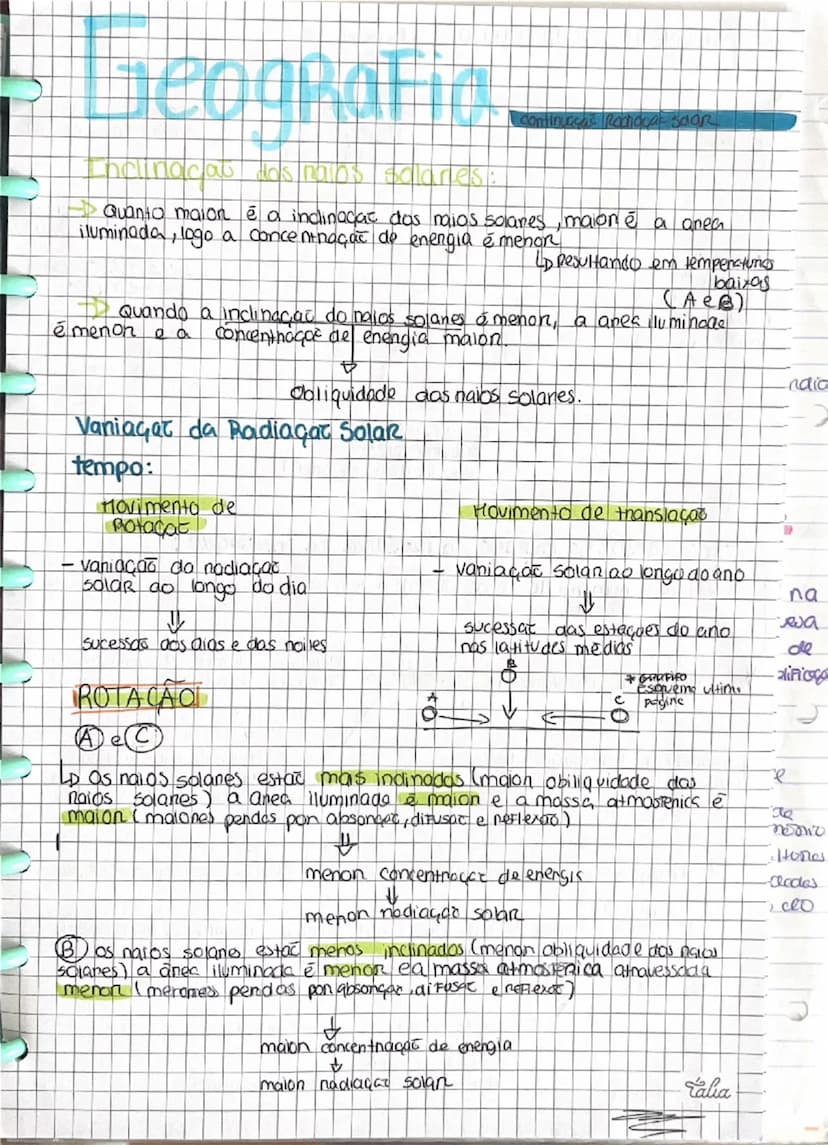 Geografia
continuação Radiação Solar
Inclinação dos raios solares:
→ Quanto maior é a inclinação dos raios solares, maior é a area
iluminada, logo a concentração de energia é menor
↳ Resultando em temperaturas
baixas
(A e B)
→ Quando a inclinação do raios solares é menor, a area iluminada
é menor e a concentração de energia maior.
↓
Obliquidade dos raios solares.
Variação da Radiação Solar
tempo:
Movimento de
Rotação
Movimento de translação
- variação da radiação
solar ao longo do dia
- variação solar ao longo do ano
⇓
⇓
sucessão dos dias e das noites
sucessão das estações do ano
nas latitudes médias
ROTAÇÃO
A B C
* GRÁFICO
esquema ultima
página
A e C
↳ Os raios solares estão mais inclinados (maior obiliquidade dos
raios solares) a área iluminada é maior e a massa atmosférica é
maior (maiores perdas por absorção, difusão e reflexão)
⇓
menor concentração de energia
↓
menor radiação solar
B os raios solares estão menos inclinados (menor obliquidade dos raios
solares) a área iluminada é menor e a massa atmosférica atravessada
menor (menores perdas por absorção, difusão e reflexão)
↓
maior concentração de energia
↓
maior radiação solar
Tália
na
de
e
de